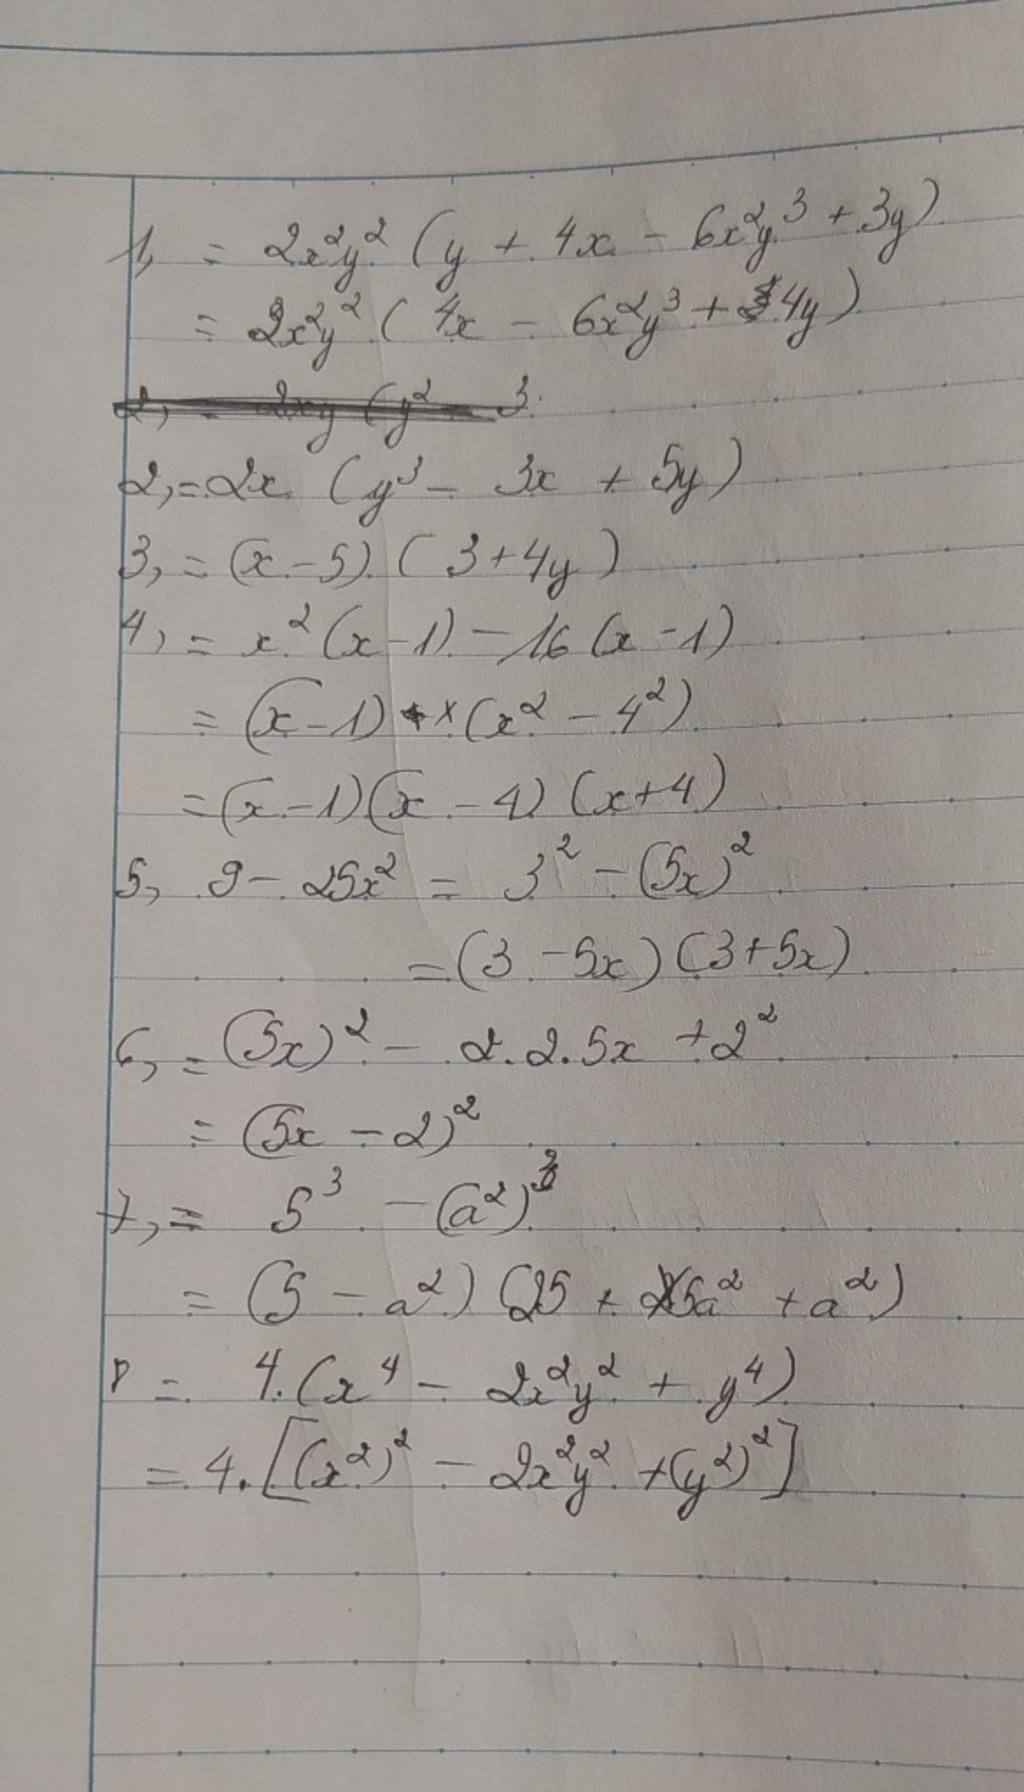 1, = 2x²y² (y + 4x - 6x²y³ + 3y)
= 2x²y² (4x - 6x²y³ + 4y)
2, = 2xy (y² - 3
2, = 2x (y³ - 3x + 5y)
3, = (x-5) (3+4y)
4, = x² (x-1) - 16 (x-1)
= (x-1) × (x² - 4²)
= (x-1)(x-4) (x+4)
5, 9 - 25x² = 3² - (5x)²
= (3 - 5x) (3+5x)
6, = (5x)² - 2.2.5x + 2²
= (5x - 2)²
7, = 5³ - (a²)³
= (5 - a²) (25 + 5a² + a²)
8 = 4.(x⁴ - 2x²y² + y⁴)
= 4.[(x²)² - 2x²y² + (y²)²]